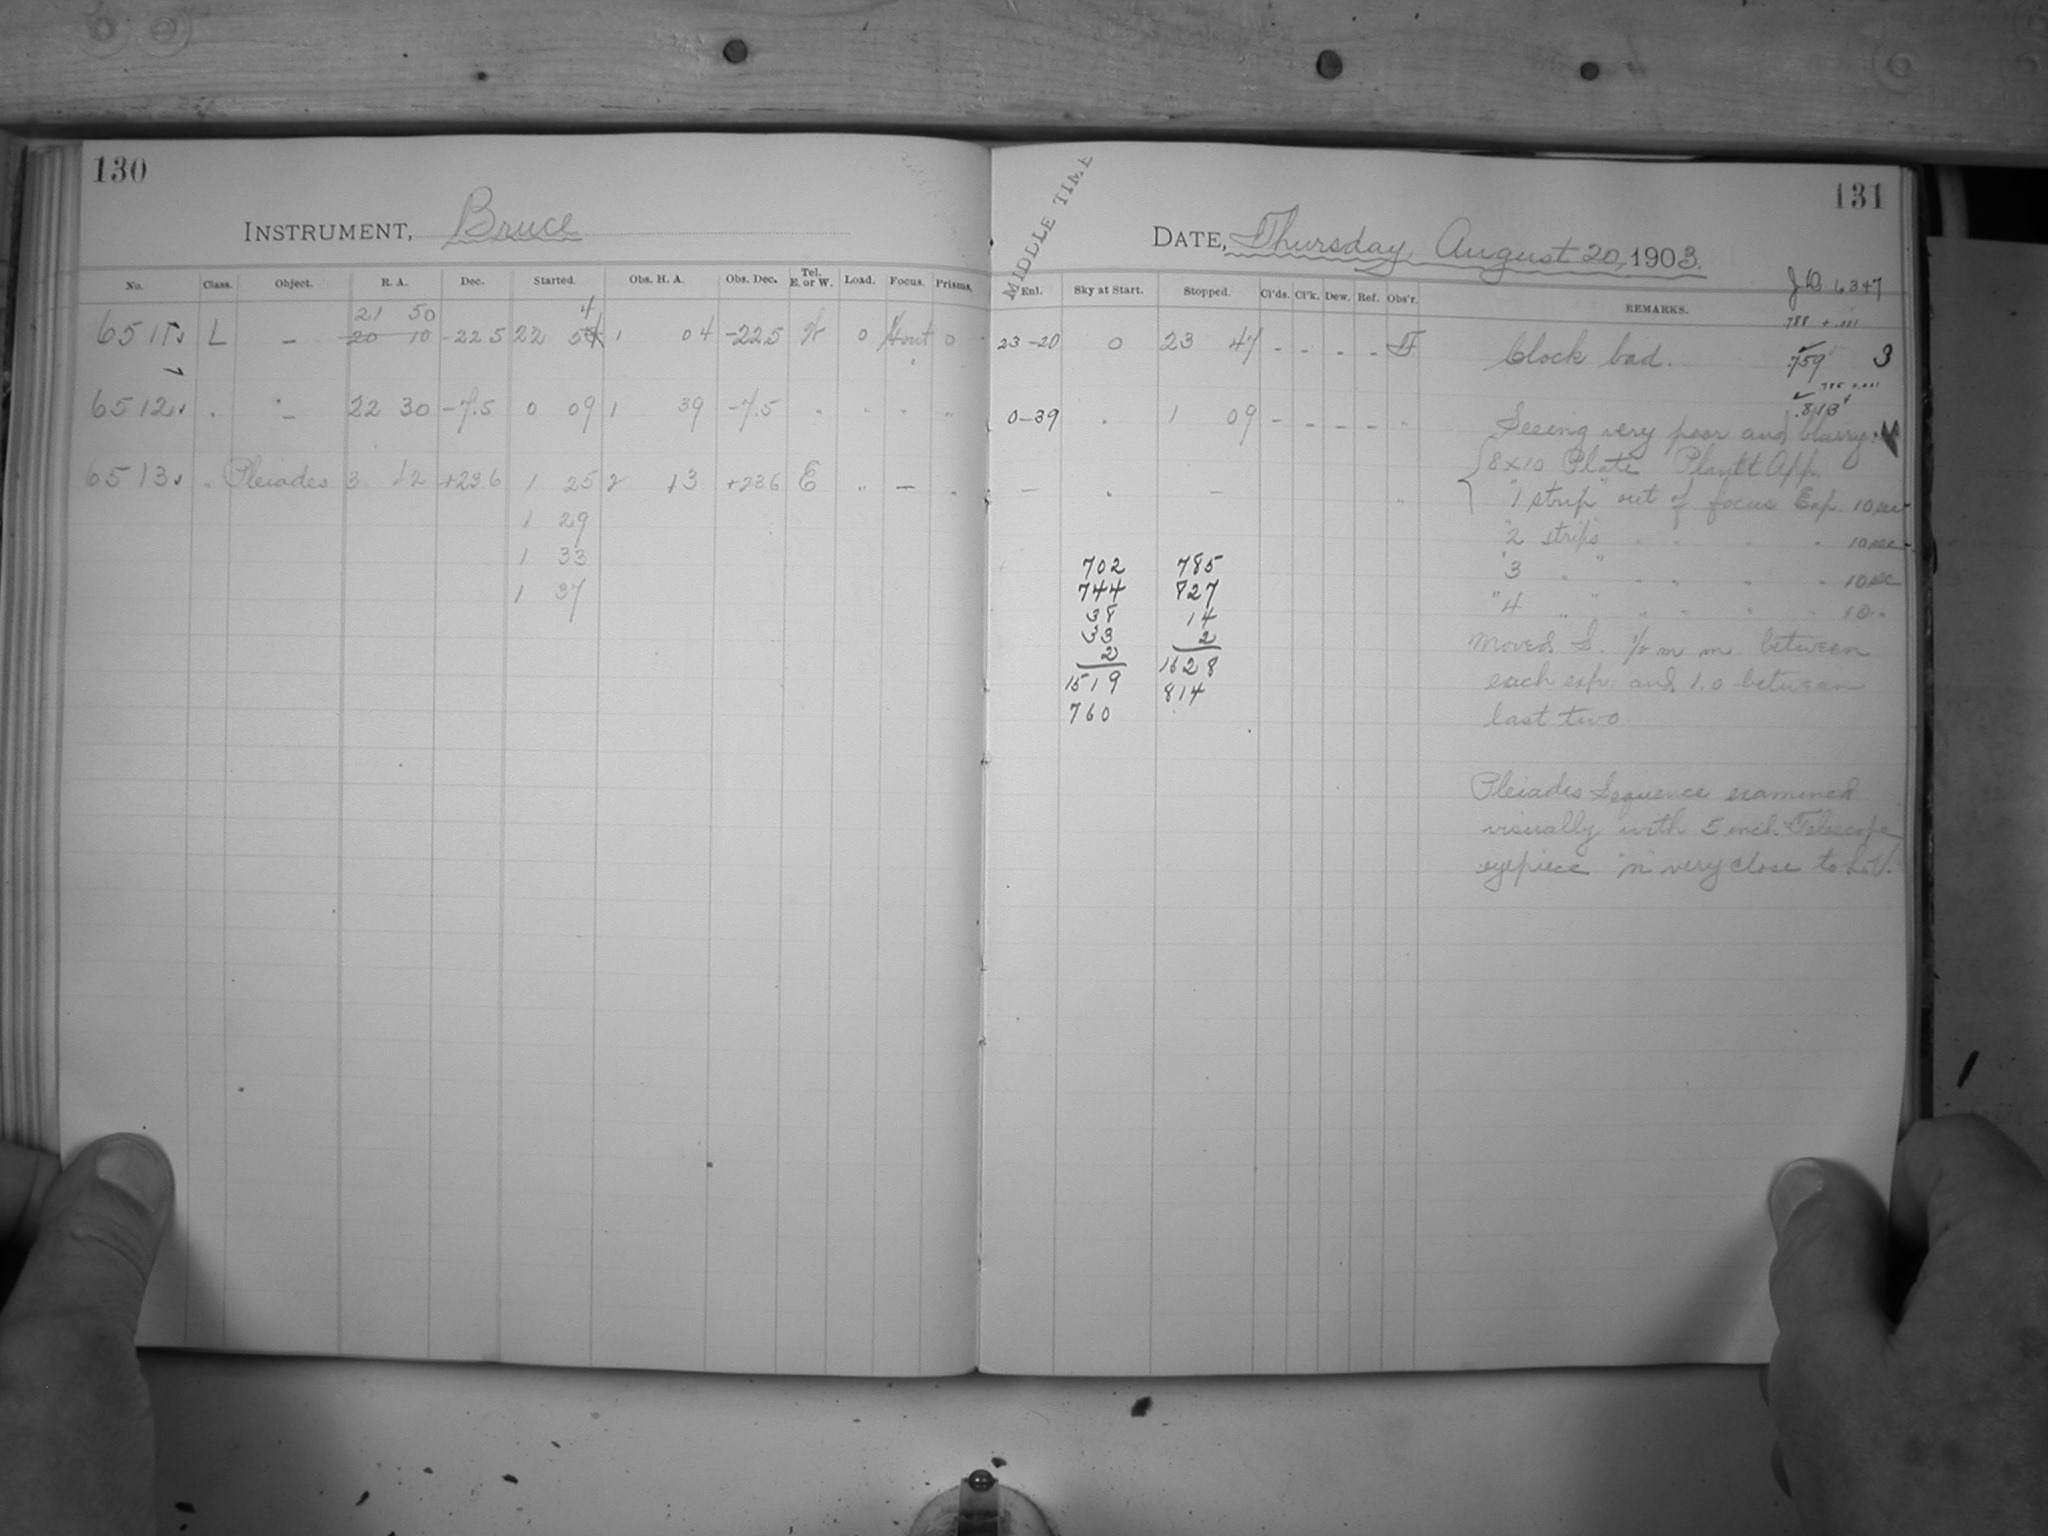 130
INSTRUMENT, Bruce
No. Class. Object. R. A. Dec. Started. Obs. H. A. Obs. Dec. Tel. E. or W. Load. Focus. Prisms.
21 50 4
6511 L – 20 10 -22.5 22 5 1 04 -22.5 W 0 out 0
6512 " – 22 30 -7.5 0 09 1 39 -7.5 " " " "
6513 " Pleiades 3 12 +23.6 1 25 2 13 +23.6 E " – "
1 29
1 33
1 37
131
MIDDLE TIME
DATE, Thursday, August 20, 1903.
J.D. 6347
Enl. Sky at Start. Stopped. Cl'ds. Cl'k. Dew. Ref. Obs'r. REMARKS.
.788 + .111
23-20 0 23 47 - - - - Clock bad. .759 3
0-39 " 1 09 - - - - " .813
Seeing very poor and blurry.
– " – " 8x10 Plate App.
"1 strip" out of focus Exp. 10 sec
"2 strips " " " " 10 sec
"3 " " " " " 10 sec
"4 " " " " " 10 "
702 785
744 827
38 14
33 2
2 1628
1519 814
760
Moved S. 1/2 m m between
each exp. and 1.0 between
last two
Pleiades Sequence examined
visually with 5 inch Telescope
eyepiece "n" very close to